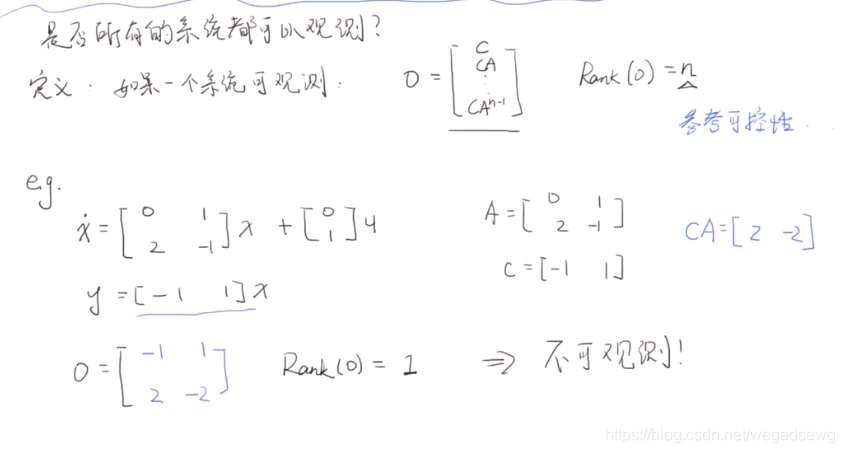 是否所有的系统都可以观测?
定义: 如果一个系统可观测: O = [ C CA ⋮ CA^{n-1} ] Rank(O) = n
参考可控性...
e.g.
ẋ = [ 0 1 2 -1 ] x + [ 0 1 ] u A = [ 0 1 2 -1 ] CA = [ 2 -2 ]
y = [ -1 1 ] x C = [ -1 1 ]
O = [ -1 1 2 -2 ] Rank(O) = 1 ⇒ 不可观测!
https://blog.csdn.net/wegadsewg